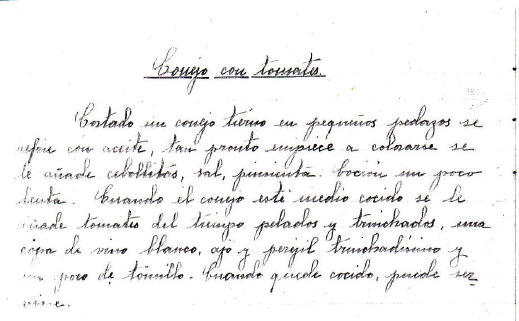 Conejo con tomates.
Cortado un conejo tierno en pequeños pedazos se
refríe con aceite, tan pronto empiece a colorarse se
le añade cebollitas, sal, pimienta. Cocción un poco
lenta. Cuando el conejo esté medio cocido se le
añade tomates del tiempo pelados y trinchados, una
copa de vino blanco, ajo y perejil trinchadísimo y
un poco de tomillo. Cuando quede cocido, puede ser-
virse.